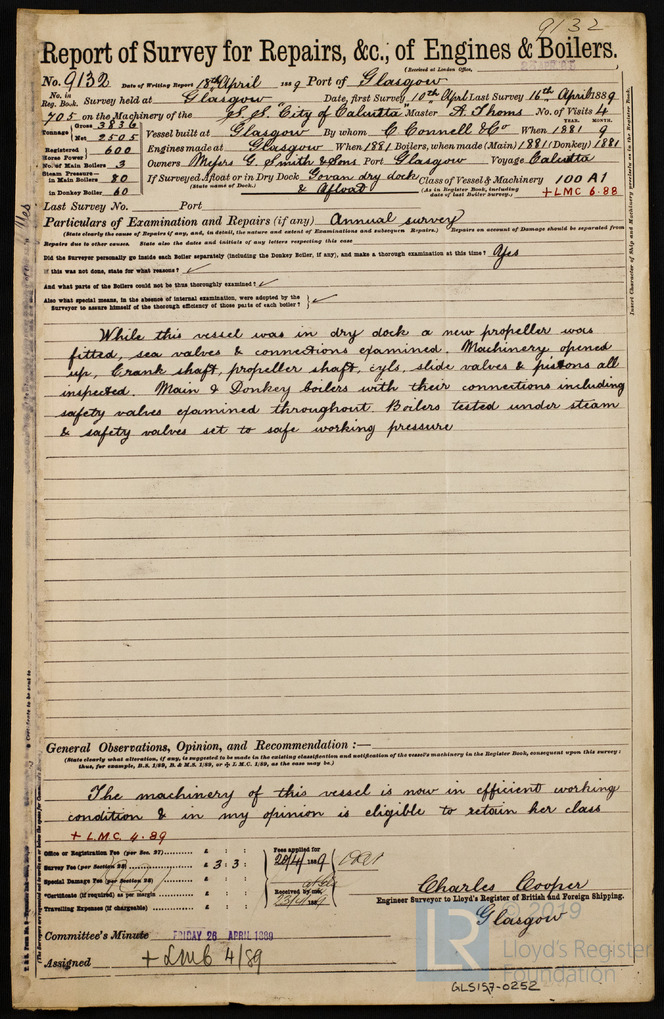 9132
Report of Survey for Repairs, &c., of Engines & Boilers.
(Received at London Office,
No. 9132 Date of Writing Report 18th April 1889 Port of Glasgow
No. in Reg. Book. Survey held at Glasgow Date, first Survey 10th April Last Survey 16th April 1889
705 on the Machinery of the S.S. "City of Calcutta" Master A. Thoms No. of Visits 4
Tonnage Gross 3836
Net 2505
Vessel built at Glasgow By whom C Connell & Co When YEAR. 1881 MONTH. 9
Registered Horse Power 600 Engines made at Glasgow When 1881 Boilers, when made (Main) 1881 (Donkey) 1881
No. of Main Boilers 3 Owners Messrs G. Smith & Sons Port Glasgow Voyage Calcutta
Steam Pressure in Main Boilers 80 If Surveyed Afloat or in Dry Dock Govan dry dock Class of Vessel & Machinery 100 A1
(State name of Dock.) & Afloat (As in Register Book, including date of last Boiler Survey.) + LMC 6.88
in Donkey Boiler 60
Last Survey No. Port
Particulars of Examination and Repairs (if any) Annual survey
(State clearly the cause of Repairs if any, and, in detail, the nature and extent of Examinations and subsequent Repairs.) Repairs on account of Damage should be separated from
Repairs due to other causes. State also the dates and initials of any letters respecting this case
Did the Surveyor personally go inside each Boiler separately (including the Donkey Boiler, if any), and make a thorough examination at this time? Yes
If this was not done, state for what reasons? ✓
And what parts of the Boilers could not be thus thoroughly examined? ✓
Also what special means, in the absence of internal examination, were adopted by the
Surveyor to assure himself of the thorough efficiency of those parts of each boiler? ✓
While this vessel was in dry dock a new propeller was
fitted, sea valves & connections examined. Machinery opened
up, Crank shaft, propeller shaft, cyls, slide valves & pistons all
inspected. Main & Donkey boilers with their connections including
safety valves examined throughout. Boilers tested under steam
& safety valves set to safe working pressure
General Observations, Opinion, and Recommendation :—
(State clearly what alteration, if any, is suggested to be made in the existing classification and notification of the vessel's machinery in the Register Book, consequent upon this survey;
thus, for example, B.S. 1/89, B. & M.S. 1/89, or + L.M.C. 1/89, as the case may be.)
The machinery of this vessel is now in efficient working
condition & in my opinion is eligible to retain her class
+ L.M.C. 4.89
Office or Registration Fee (per Sec. 27) £ : :
Survey Fee (per Section 28) £ 3 : 3 :
Special Damage Fee (per Section 28) £ : :
*Certificate (if required) as per margin £ : :
Travelling Expenses (if chargeable) £ : :
Fees applied for
20/4/1889
Received by me,
23/4/1889
Charles Cooper
Engineer Surveyor to Lloyd's Register of British and Foreign Shipping.
Glasgow
Committee's Minute FRIDAY 26 APRIL 1889
Assigned + LMC 4/89
Insert Character of Ship and Machinery precisely as in the Register Book.
© 2019
LR
Lloyd's Register
Foundation
GLS157-0252